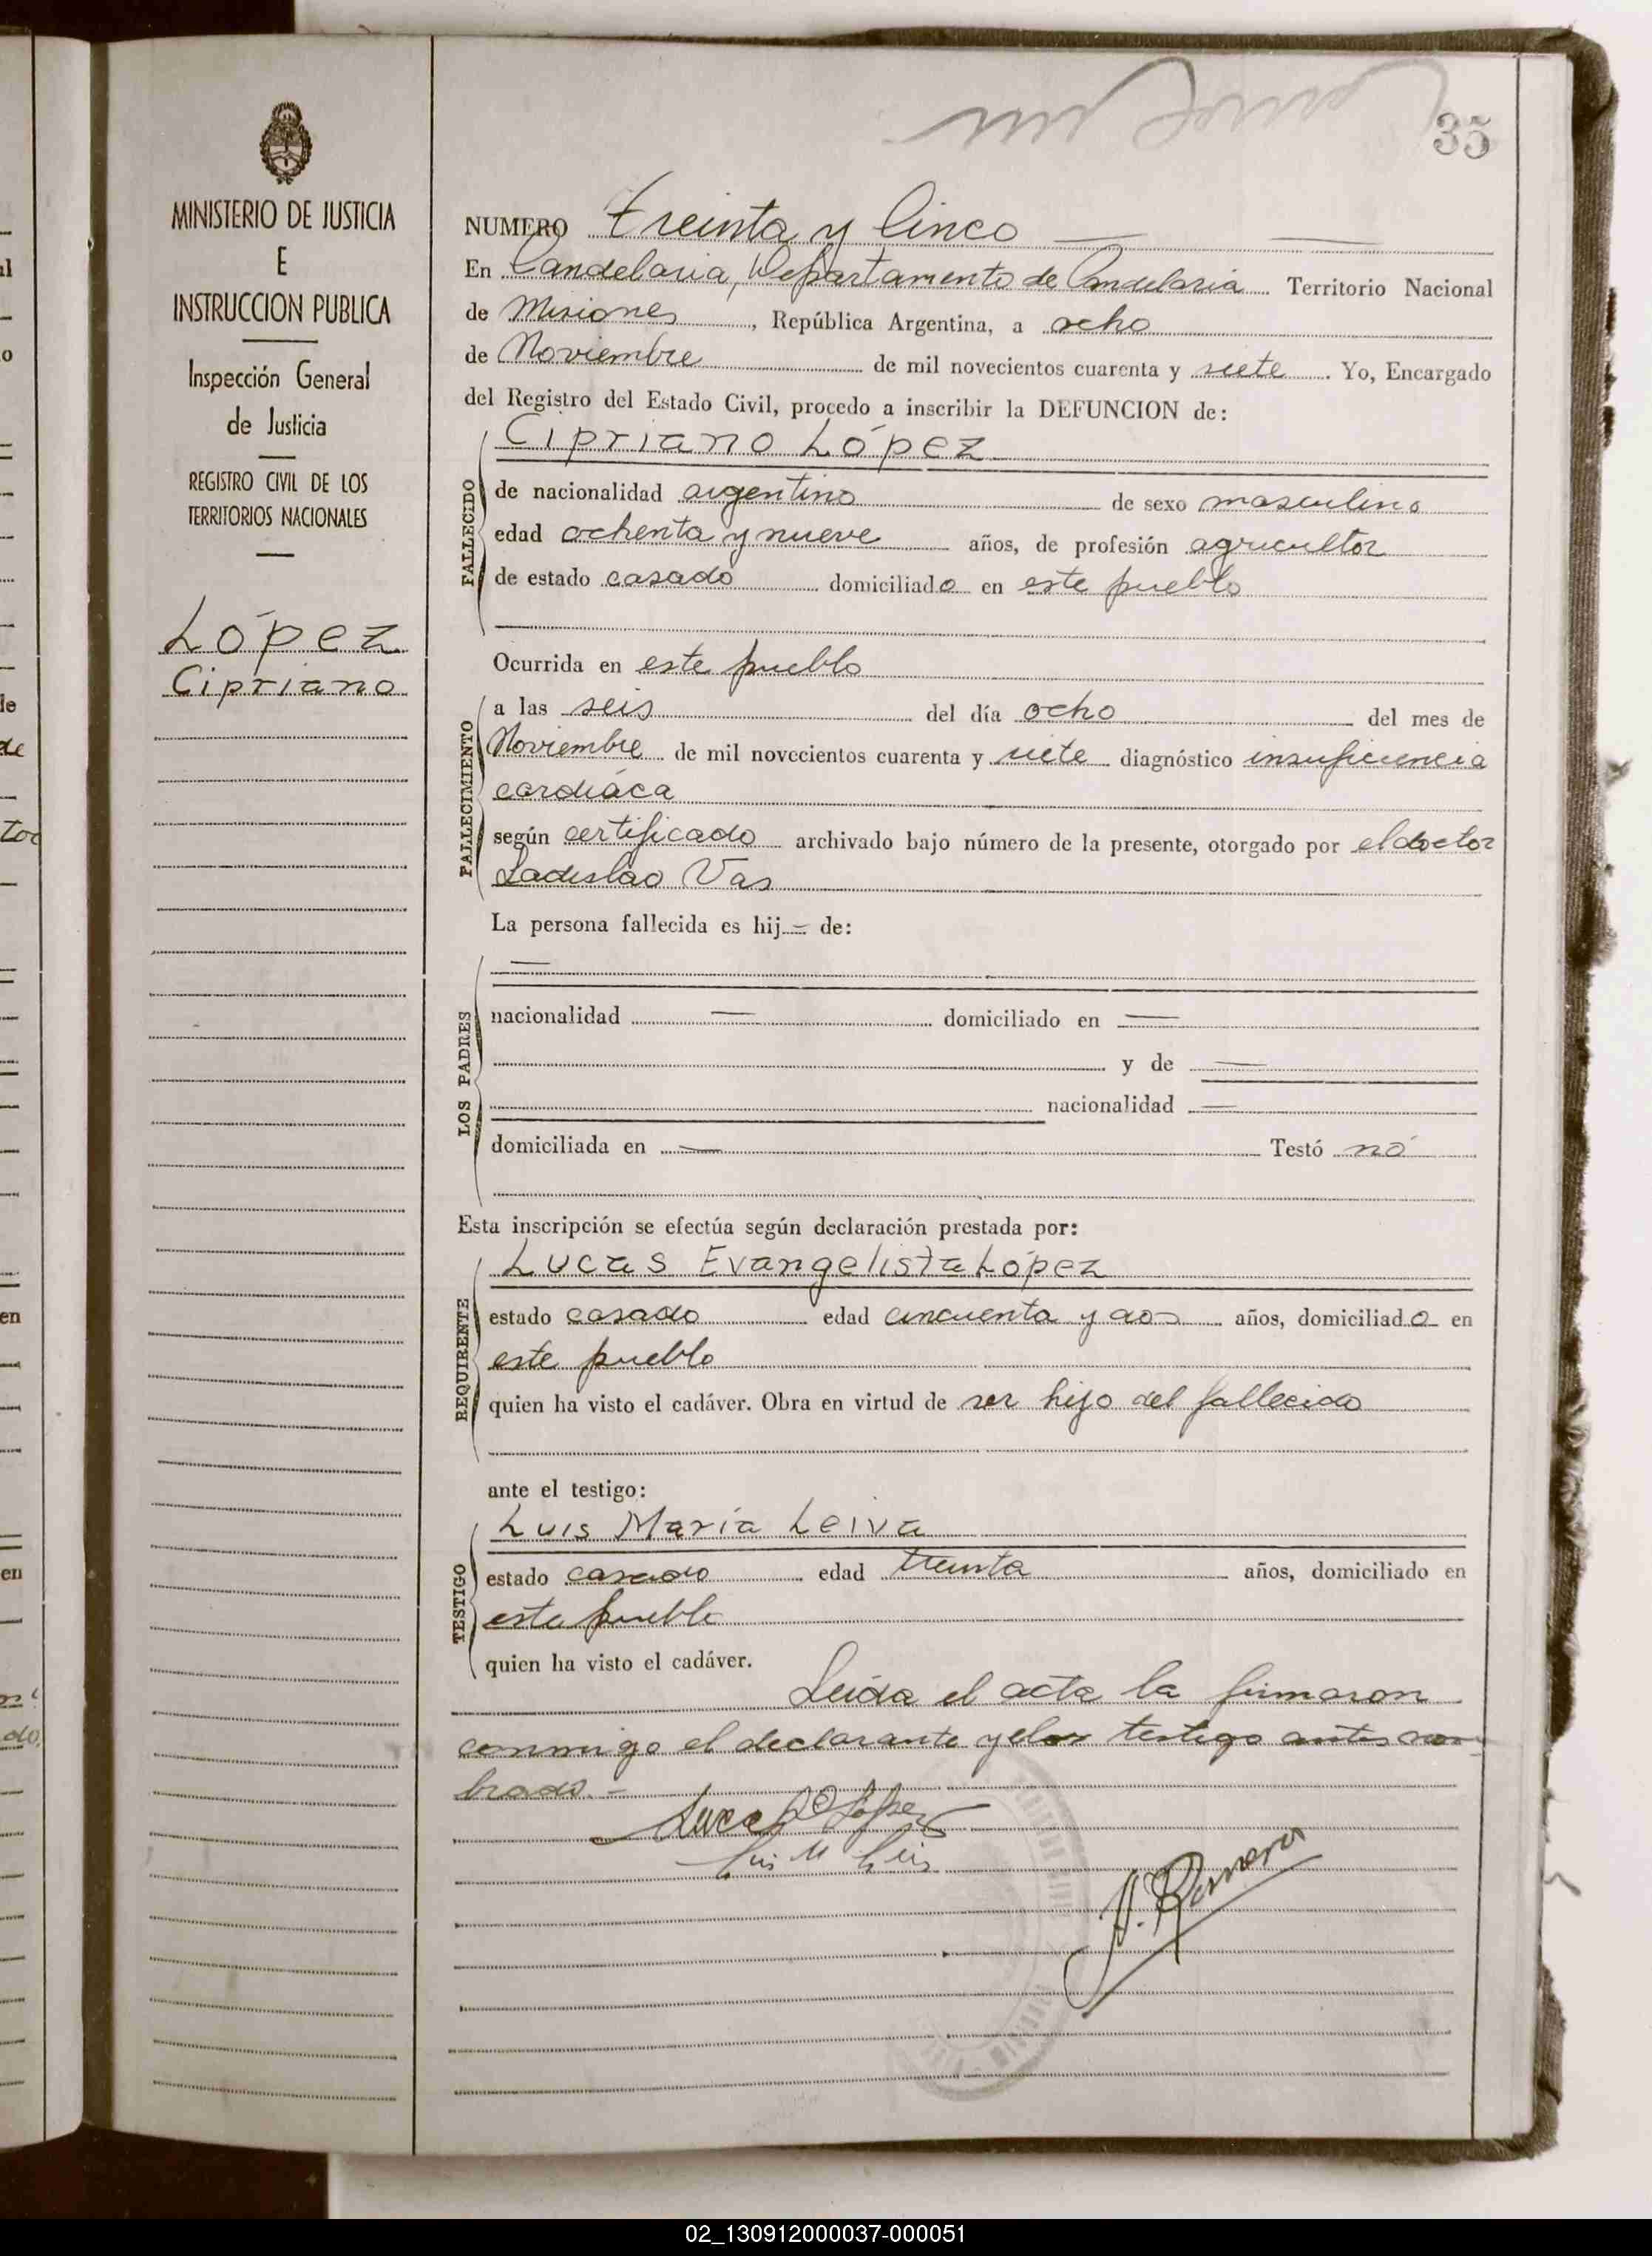 35
MINISTERIO DE JUSTICIA
E
INSTRUCCION PUBLICA
Inspección General
de Justicia
REGISTRO CIVIL DE LOS
TERRITORIOS NACIONALES
López
Cipriano
NUMERO Treinta y Cinco
En Candelaria, Departamento de Candelaria Territorio Nacional
de Misiones, República Argentina, a ocho
de Noviembre de mil novecientos cuarenta y siete. Yo, Encargado
del Registro del Estado Civil, procedo a inscribir la DEFUNCION de:
Cipriano López
FALLECIDO
de nacionalidad argentino de sexo masculino
edad ochenta y nueve años, de profesión agricultor
de estado casado domiciliado en este pueblo
Ocurrida en este pueblo
FALLECIMIENTO
a las seis del día ocho del mes de
Noviembre de mil novecientos cuarenta y siete diagnóstico insuficiencia
cardiáca
según certificado archivado bajo número de la presente, otorgado por el doctor
Ladislao Vas
La persona fallecida es hij — de:
—
LOS PADRES
nacionalidad — domiciliado en —
y de —
nacionalidad —
domiciliada en — Testó nó
Esta inscripción se efectúa según declaración prestada por:
Lucas Evangelista López
REQUIRENTE
estado casado edad cincuenta y dos años, domiciliado en
este pueblo
quien ha visto el cadáver. Obra en virtud de ser hijo del fallecido
ante el testigo:
Luis María Leiva
TESTIGO
estado casado edad treinta años, domiciliado en
este pueblo
quien ha visto el cadáver.
Leída el acta la firmaron
conmigo el declarante y el testigo antes nom-
brado.-
Luca López
Luis M
02_130912000037-000051